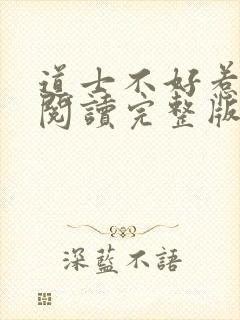 道士不好惹
閱讀完整版
深藍不語